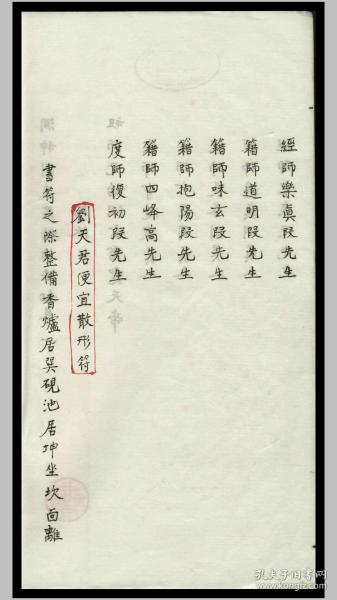 經師樂真段先生
籍師道明段先生
籍師味玄段先生
籍師抱陽段先生
籍師四峰高先生
度師復初段先生
劉天君便宜散形符
書符之際整備香爐居巽硯池居坤坐坎面離
孔夫子旧书网